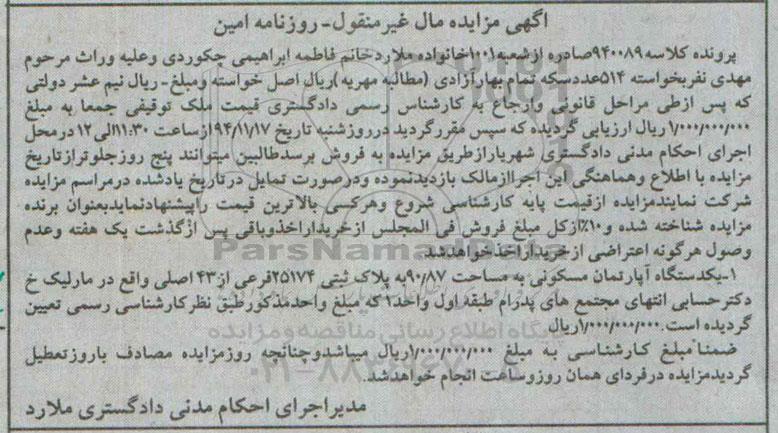 آگهی مزایده مال غیرمنقول-روزنامه امین
پرونده کلاسه ۹۴۰۰۸۹صادره ازشعبه۱۰۰۱خانواده ملاردخانم فاطمه ابراهیمی چکوردی وعلیه وراث مرحوم
مهدی نفربخواسته ۵۱۴عددسکه تمام بهارآزادی (مطالبه مهریه )ریال اصل خواسته ومبلغ-ریال نیم عشر دولتی
که پس ازطی مراحل قانونی وارجاع به کارشناس رسمی دادگستری قیمت ملک توقیفی جمعا به مبلغ
۱/۰۰۰/۰۰۰/۰۰۰ریال ارزیابی گردیده که سپس مقررگردید درروزشنبه تاریخ ۹۴/۱۱/۱۷ازساعت ۱۱:۳۰الی۱۲ درمحل
اجرای احکام مدنی دادگستری شهریارازطریق مزایده به فروش برسدطالبین میتوانند پنج روزجلوترازتاریخ
مزایده با اطلاع وهماهنگی این اجراازمالک بازدیدنموده ودرصورت تمایل درتاریخ یادشده درمراسم مزایده
شرکت نمایندمزایده ازقیمت پایه کارشناسی شروع وهرکسی بالاترین قیمت راپیشنهادنمایدبعنوان برنده
مزایده شناخته شده و۱۰٪ازکل مبلغ فروش فی المجلس ازخریداراخذوباقی پس ازگذشت یک هفته وعدم
وصول هرگونه اعتراضی ازخریداراخذخواهدشد
ParsNamadData
۱-یکدستگاه آپارتمان مسکونی به مساحت ۹۰/۸۷به پلاک ثبتی ۲۵۱۷۴فرعی از۴۳ اصلی واقع در مارلیک خ
دکترحسابی انتهای مجتمع های پدرام طبقه اول واحد۱ که مبلغ واحدمذکورطبق نظرکارشناسی رسمی تعیین
گردیده است.۱/۰۰۰/۰۰۰/۰۰۰ریال
پایگاه اطلاع رسانی مناقصه ومزایده
ضمنا مبلغ کارشناسی به مبلغ ۱/۰۰۰/۰۰۰/۰۰۰ریال میباشدوچنانچه روزمزایده مصادف باروزتعطیل
گردیدمزایده درفردای همان روزوساعت انجام خواهدشد.
مدیراجرای احکام مدنی دادگستری ملارد